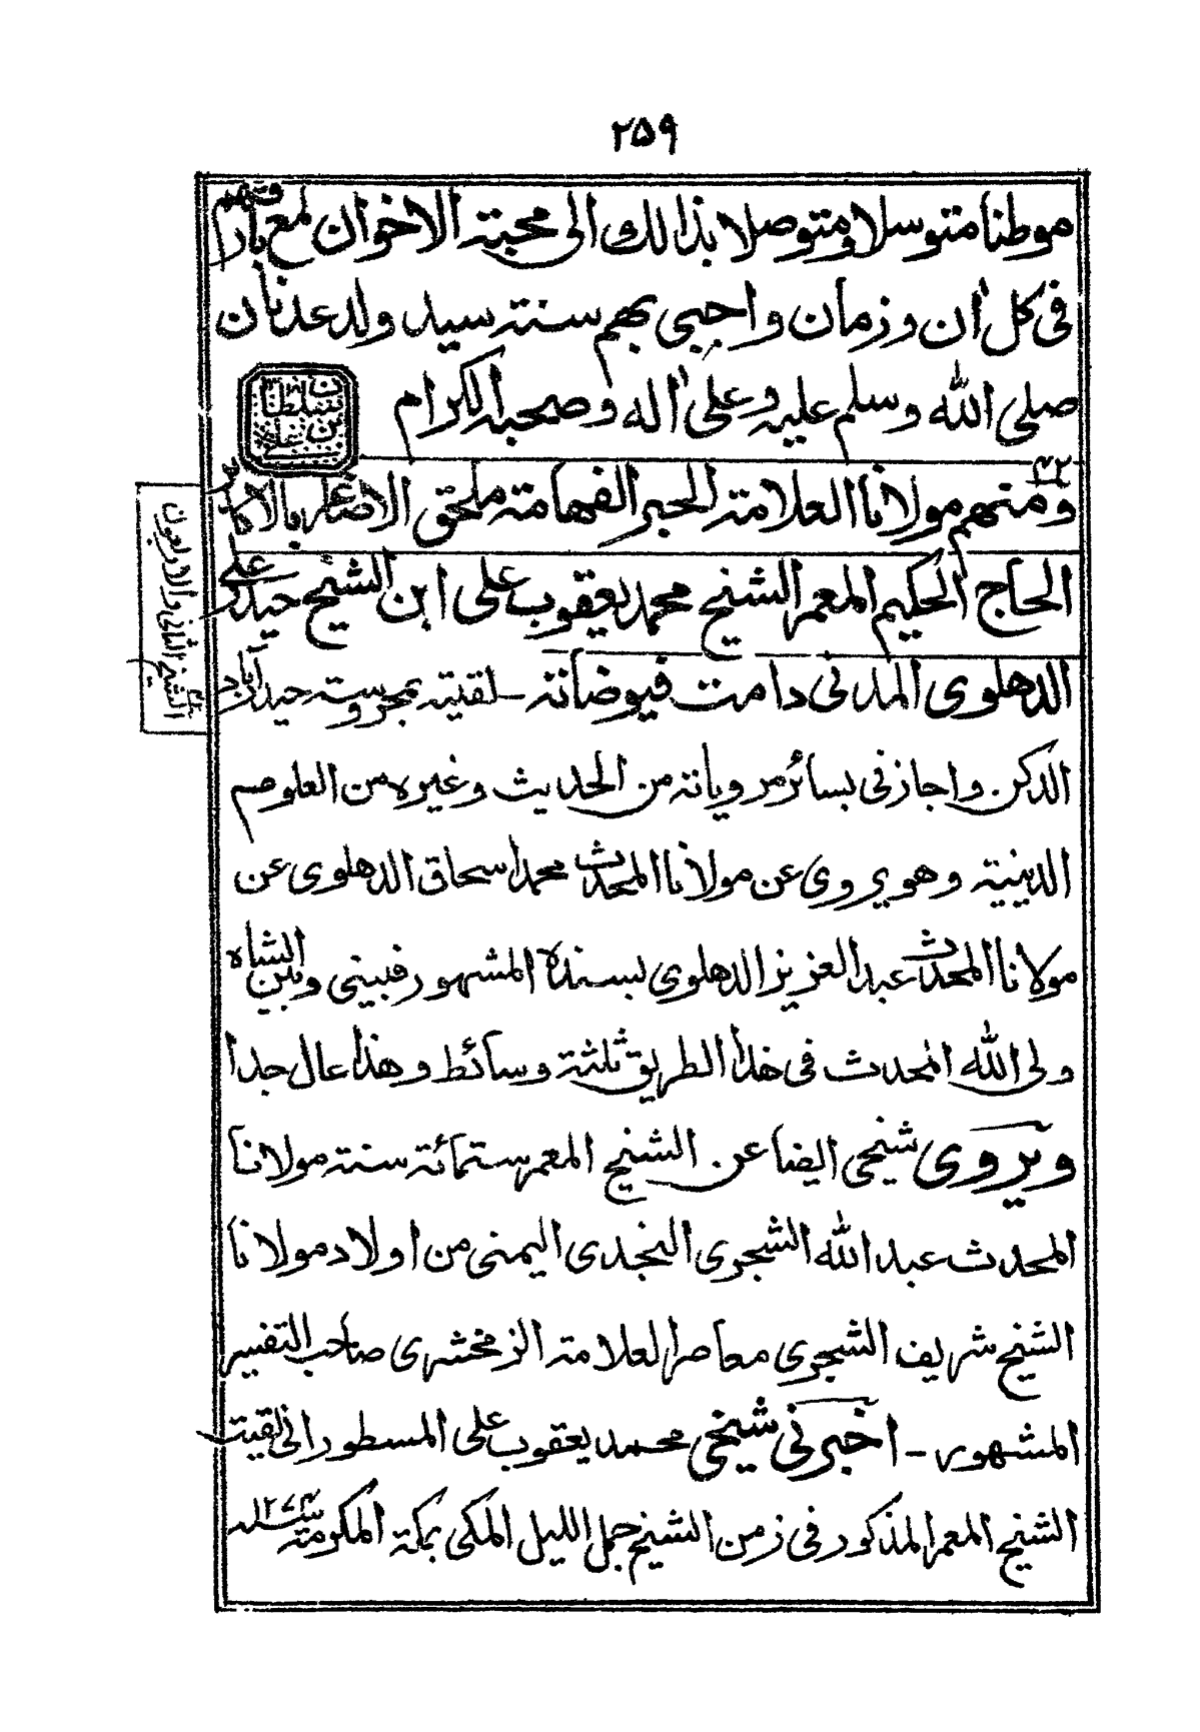 ۲۵۹
موطنا متوسلا ومتوصلا بذالك الى محبته الاخوان لمع بارقتهم
فى كل اٰن وزمان واحيى بهم سنته سيد ولد عدنان
صلى الله وسلم عليه وعلى اٰله وصحبه الكرام
سلطان بن على
۴۲
ومنهم مولانا العلامته الحبر الفهامته ملحق الاصاغر بالاكابر
الحاج الحكيم المعمر الشيخ محمد يعقوب على ابن الشيخ حيدر على
الدهلوى المدنى دامت فيوضاته - لقيته بمحروسته حيدر آباد
الدكن. واجازنى بسائر مروياته من الحديث وغيره من العلوم
الدينيته وهو يروى عن مولانا المحدث محمد اسحاق الدهلوى عن
مولانا المحدث عبد العزيز الدهلوى بسنده المشهور فبينى وبين الشاه
ولى الله المحدث فى هذا الطريق ثلثته وسائط وهذا عال جدا
ويروى شيخى ايضا عن الشيخ المعمر ستمائة سنته مولانا
المحدث عبد الله الشجرى النجدى اليمنى من اولاد مولانا
الشيخ شريف الشجرى معاصر العلامته الزمخشرى صاحب التفسير
المشهور - اخبرنى شيخى محمد يعقوب على المسطور انى لقيت
الشيخ المعمر المذكور فى زمن الشيخ جمل الليل المكى بمكته المكرمته سنه ۱۲۷۴
الشيخ الثانى والاربعون